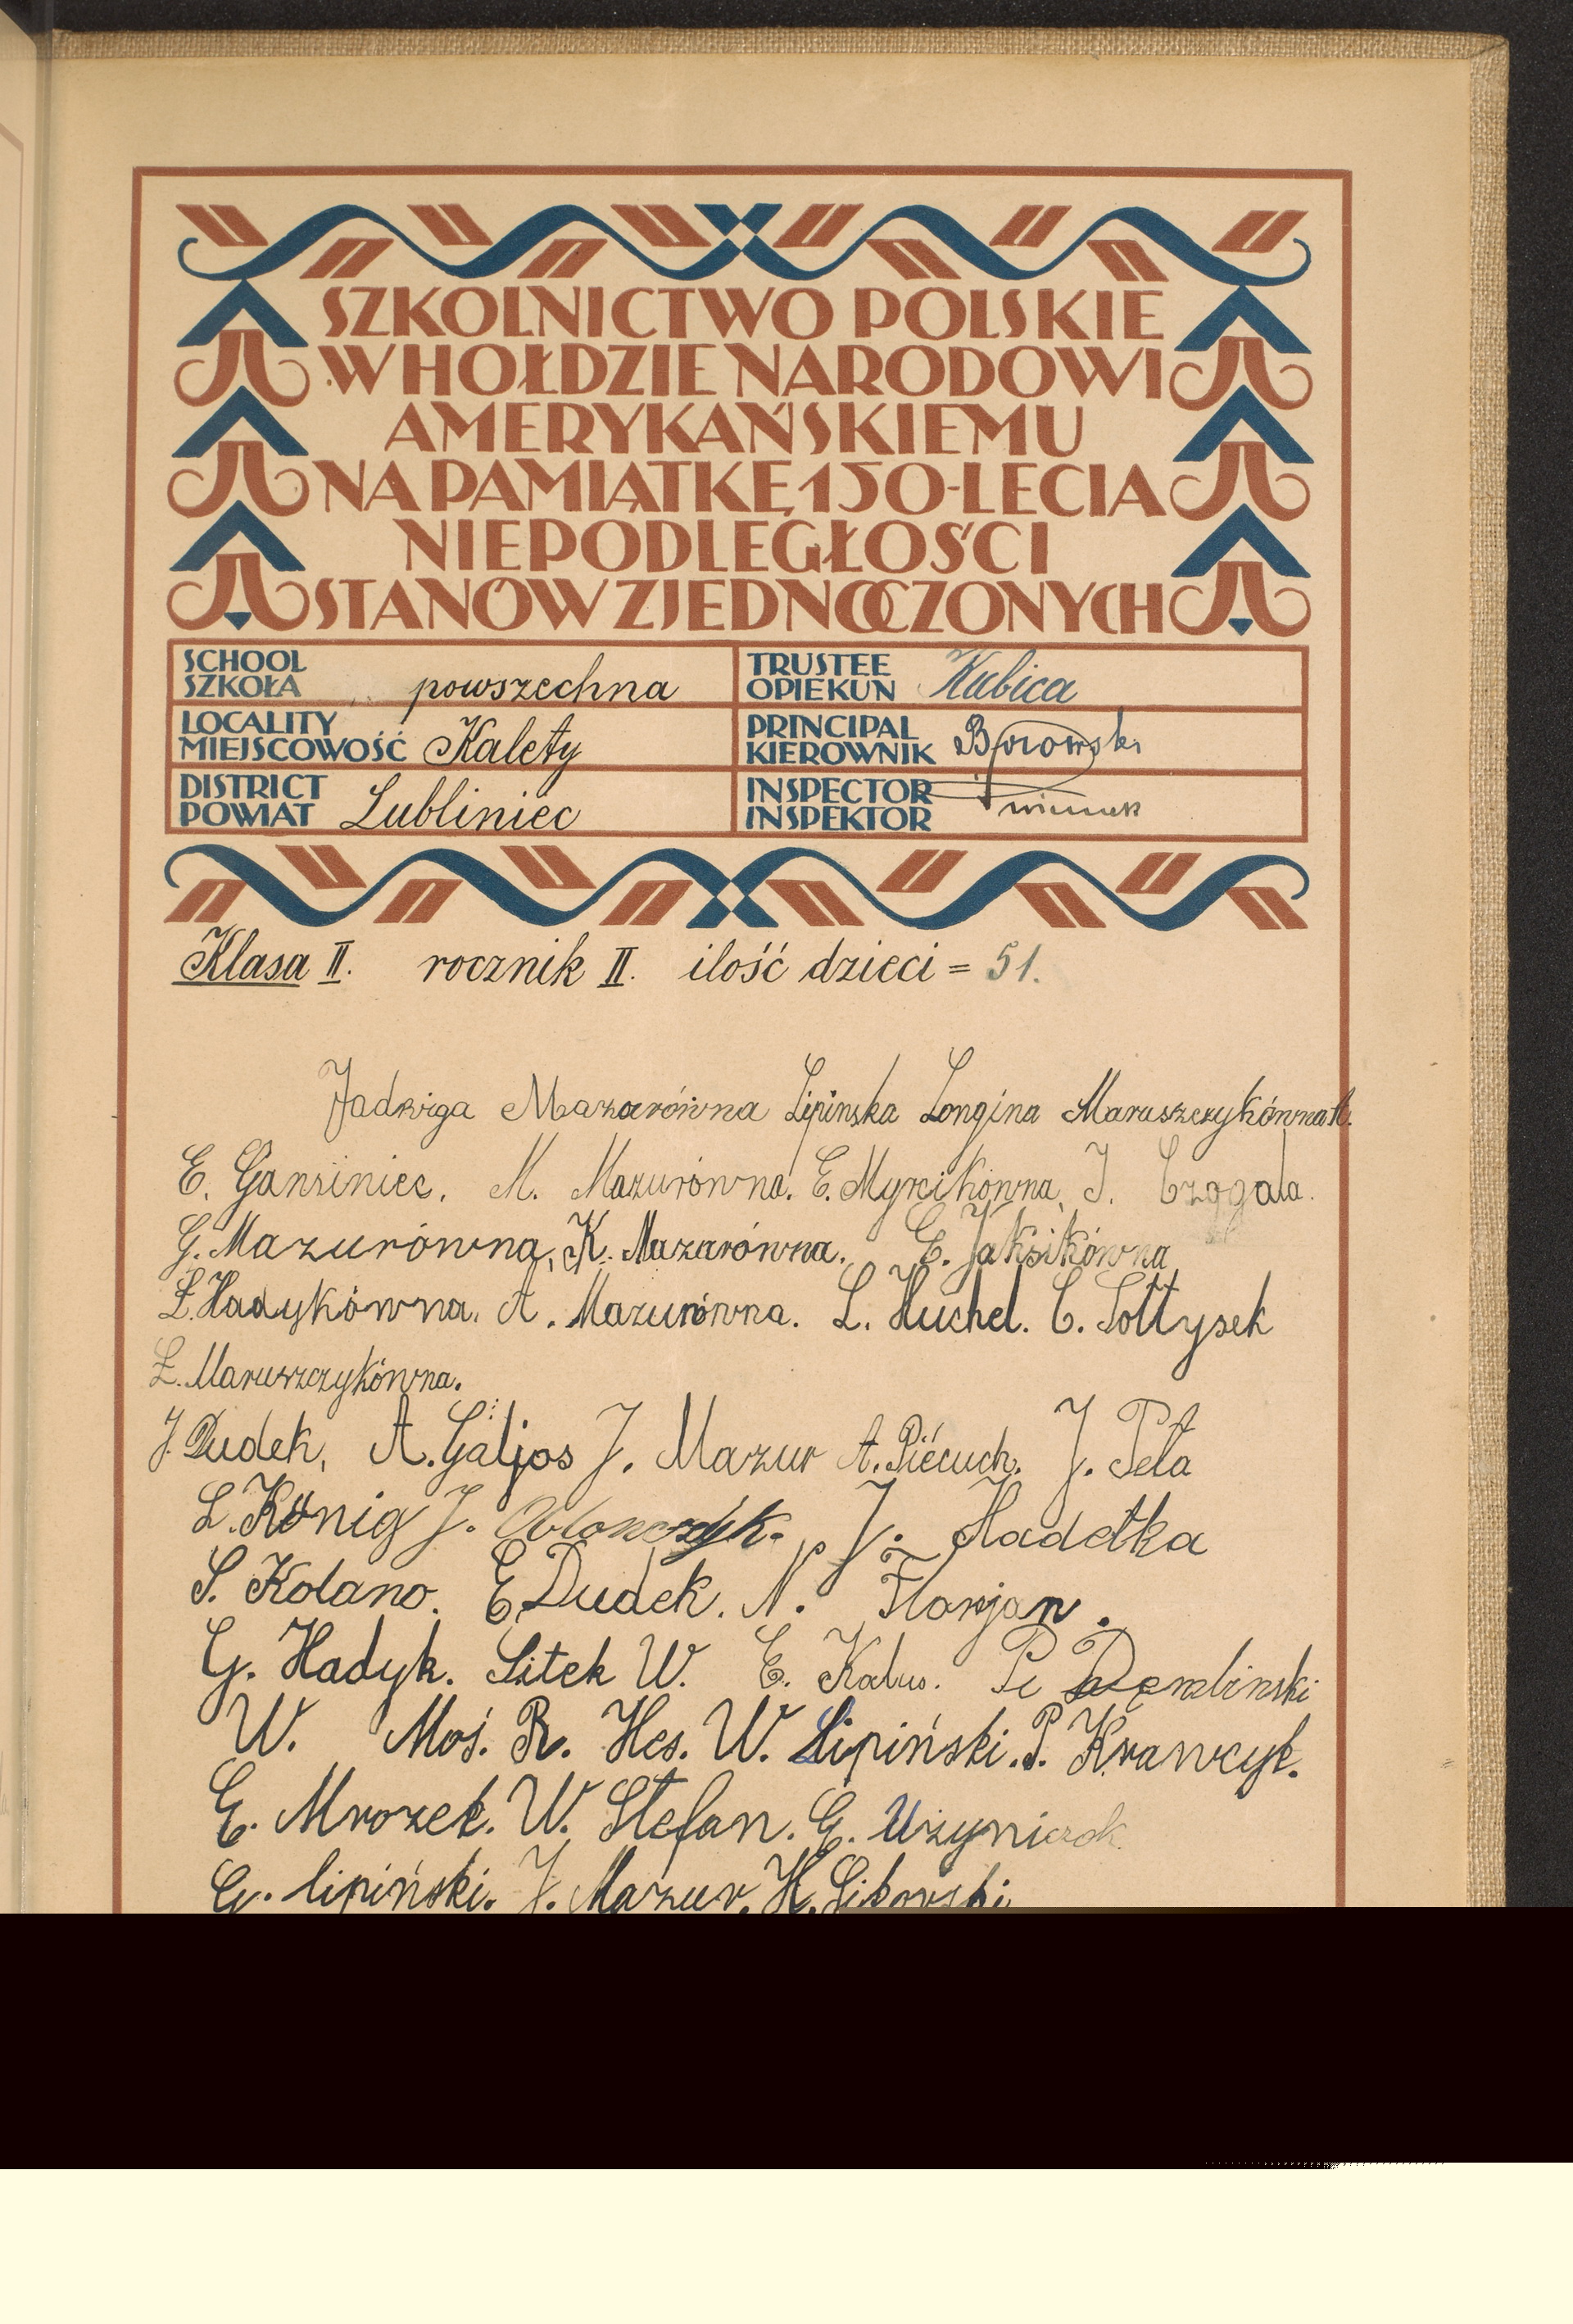 SZKOLNICTWO POLSKIE
W HOŁDZIE NARODOWI
AMERYKAŃSKIEMU
NA PAMIĄTKĘ 150-LECIA
NIEPODLEGŁOŚCI
STANÓW ZJEDNOCZONYCH
SCHOOL
SZKOŁA powszechna
TRUSTEE
OPIEKUN Kubica
LOCALITY
MIEJSCOWOŚĆ Kalety
PRINCIPAL
KIEROWNIK
DISTRICT
POWIAT Lubliniec
INSPECTOR
INSPEKTOR
Klasa II. rocznik II. ilość dzieci = 51.
Jadwiga Mazurówna Lipinska Longina Maruszczykówna
E. Gansiniec. M. Mazurówna. E. Myrcikówna, J. Czogala.
G. Mazurówna, K. Mazurówna. E. Jaksikówna
Ł. Hadykówna. A. Mazurówna. L. Huchel. C. Sołtysek
Ł. Maruszczykówna.
J. Dudek, A. Galjos J. Mazur A. Piécuch. J. Peła
L. König J. J. Hadetka
S. Kolano. E. Dudek. N. Florjan.
G. Hadyk. Sitek W. E. Kalus. Dembinski
W. Moś. R. Hes. W. Lipiński. P. Krawcyk.
E. Mrozek. W. Stefan. G.
G. lipiński. J. Mazur. H. Sikorski